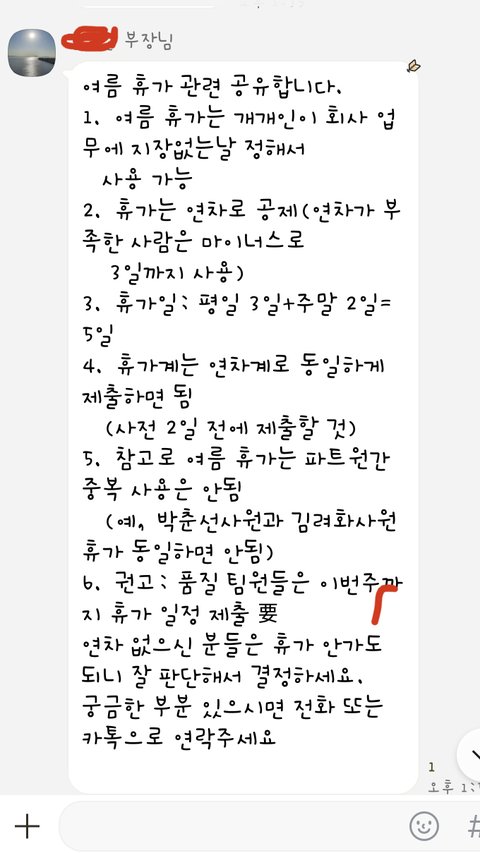 부장님
여름 휴가 관련 공유합니다.
1. 여름 휴가는 개개인이 회사 업
무에 지장없는날 정해서
사용 가능
2. 휴가는 연차로 공제(연차가 부
족한 사람은 마이너스로
3일까지 사용)
3. 휴가일: 평일 3일+주말 2일=
5일
4. 휴가계는 연차계로 동일하게
제출하면 됨
(사전 2일 전에 제출할 것)
5. 참고로 여름 휴가는 파트원간
중복 사용은 안됨
(예, 박춘선사원과 김려화사원
휴가 동일하면 안됨)
6. 권고: 품질 팀원들은 이번주까
지 휴가 일정 제출 要
연차 없으신 분들은 휴가 안가도
되니 잘 판단해서 결정하세요.
궁금한 부분 있으시면 전화 또는
카톡으로 연락주세요
1
오후 1:
+
#